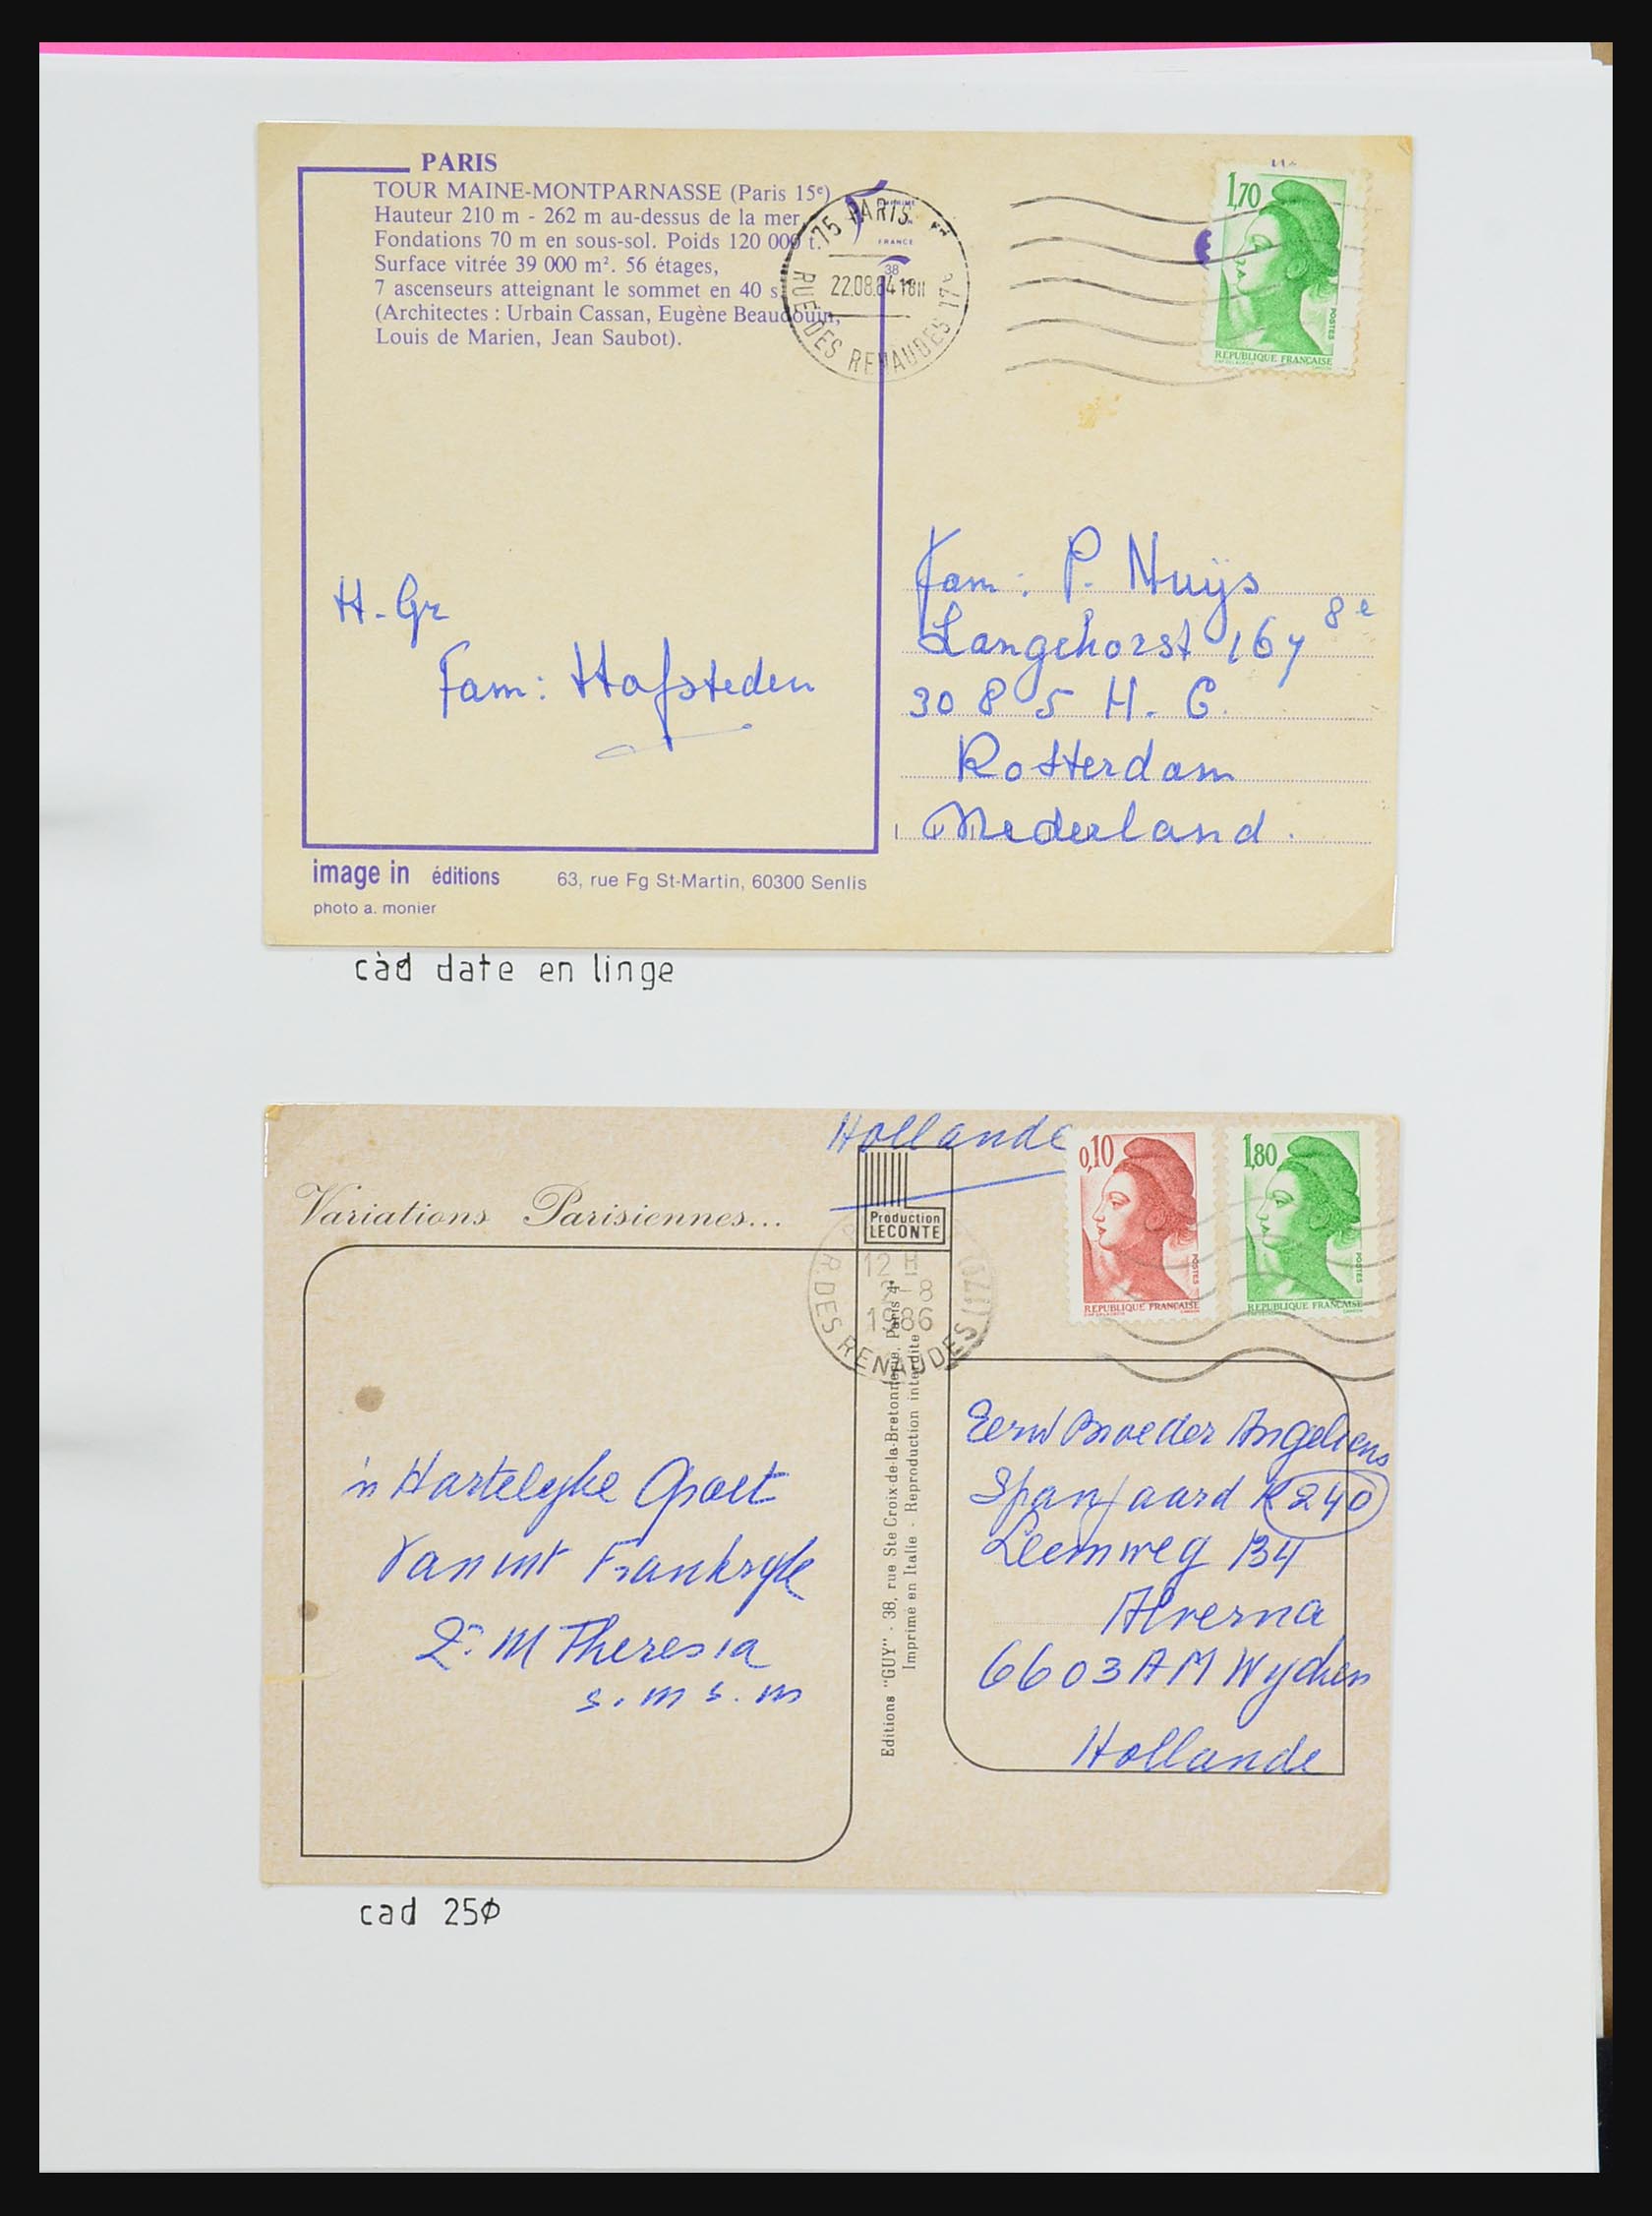 PARIS
TOUR MAINE-MONTPARNASSE (Paris 15e)
Hauteur 210 m - 262 m au-dessus de la mer,
Fondations 70 m en sous-sol. Poids 120 000 t.
Surface vitrée 39 000 m². 56 étages,
7 ascenseurs atteignant le sommet en 40 s.
(Architectes : Urbain Cassan, Eugène Beaudouin,
Louis de Marien, Jean Saubot).
75 PARIS
22.08.84 18H
RUE DES RENAUDES 17e
FRANCE
38
1,70
POSTES
REPUBLIQUE FRANÇAISE
H. Gr
Fam: Hofsteden
Fam: P. Nuijs
Langehorst 167 8e
3085 H. G.
Rotterdam
Nederland.
image in éditions 63, rue Fg St-Martin, 60300 Senlis
photo a. monier
càd date en linge
Hollande
Variations Parisiennes...
Production
LECONTE
0,10
POSTES
REPUBLIQUE FRANÇAISE
1,80
POSTES
REPUBLIQUE FRANÇAISE
12 H
8
1986
R. DES RENAUDES (17e)
'n Hartelyke Groet
Vanuit Frankryk
Zr. M Theresia
s. m s. m
Editions "GUY" - 38, rue Ste Croix-de-la-Bretonnerie, Paris 4e
Imprimé en Italie - Reproduction interdite
Eerw Broeder Angelicus
Spanjaard K 240
Leemweg 134
Alverna
6603 AM Wychen
Hollande
cad 25Ø